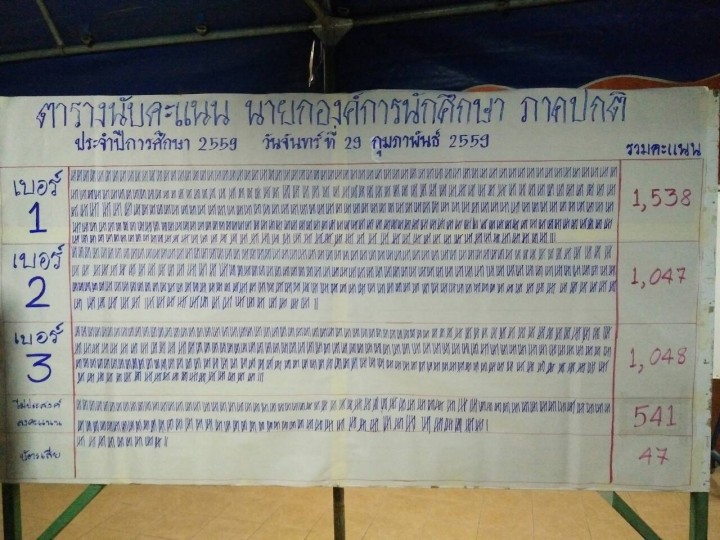 ตารางนับคะแนน นายกองค์การนักศึกษา ภาคปกติ
ประจำปีการศึกษา 2559 วันจันทร์ที่ 29 กุมภาพันธ์ 2559
รวมคะแนน
เบอร์ 1 1,538
เบอร์ 2 1,047
เบอร์ 3 1,048
ไม่ประสงค์
ลงคะแนน 541
บัตรเสีย 47